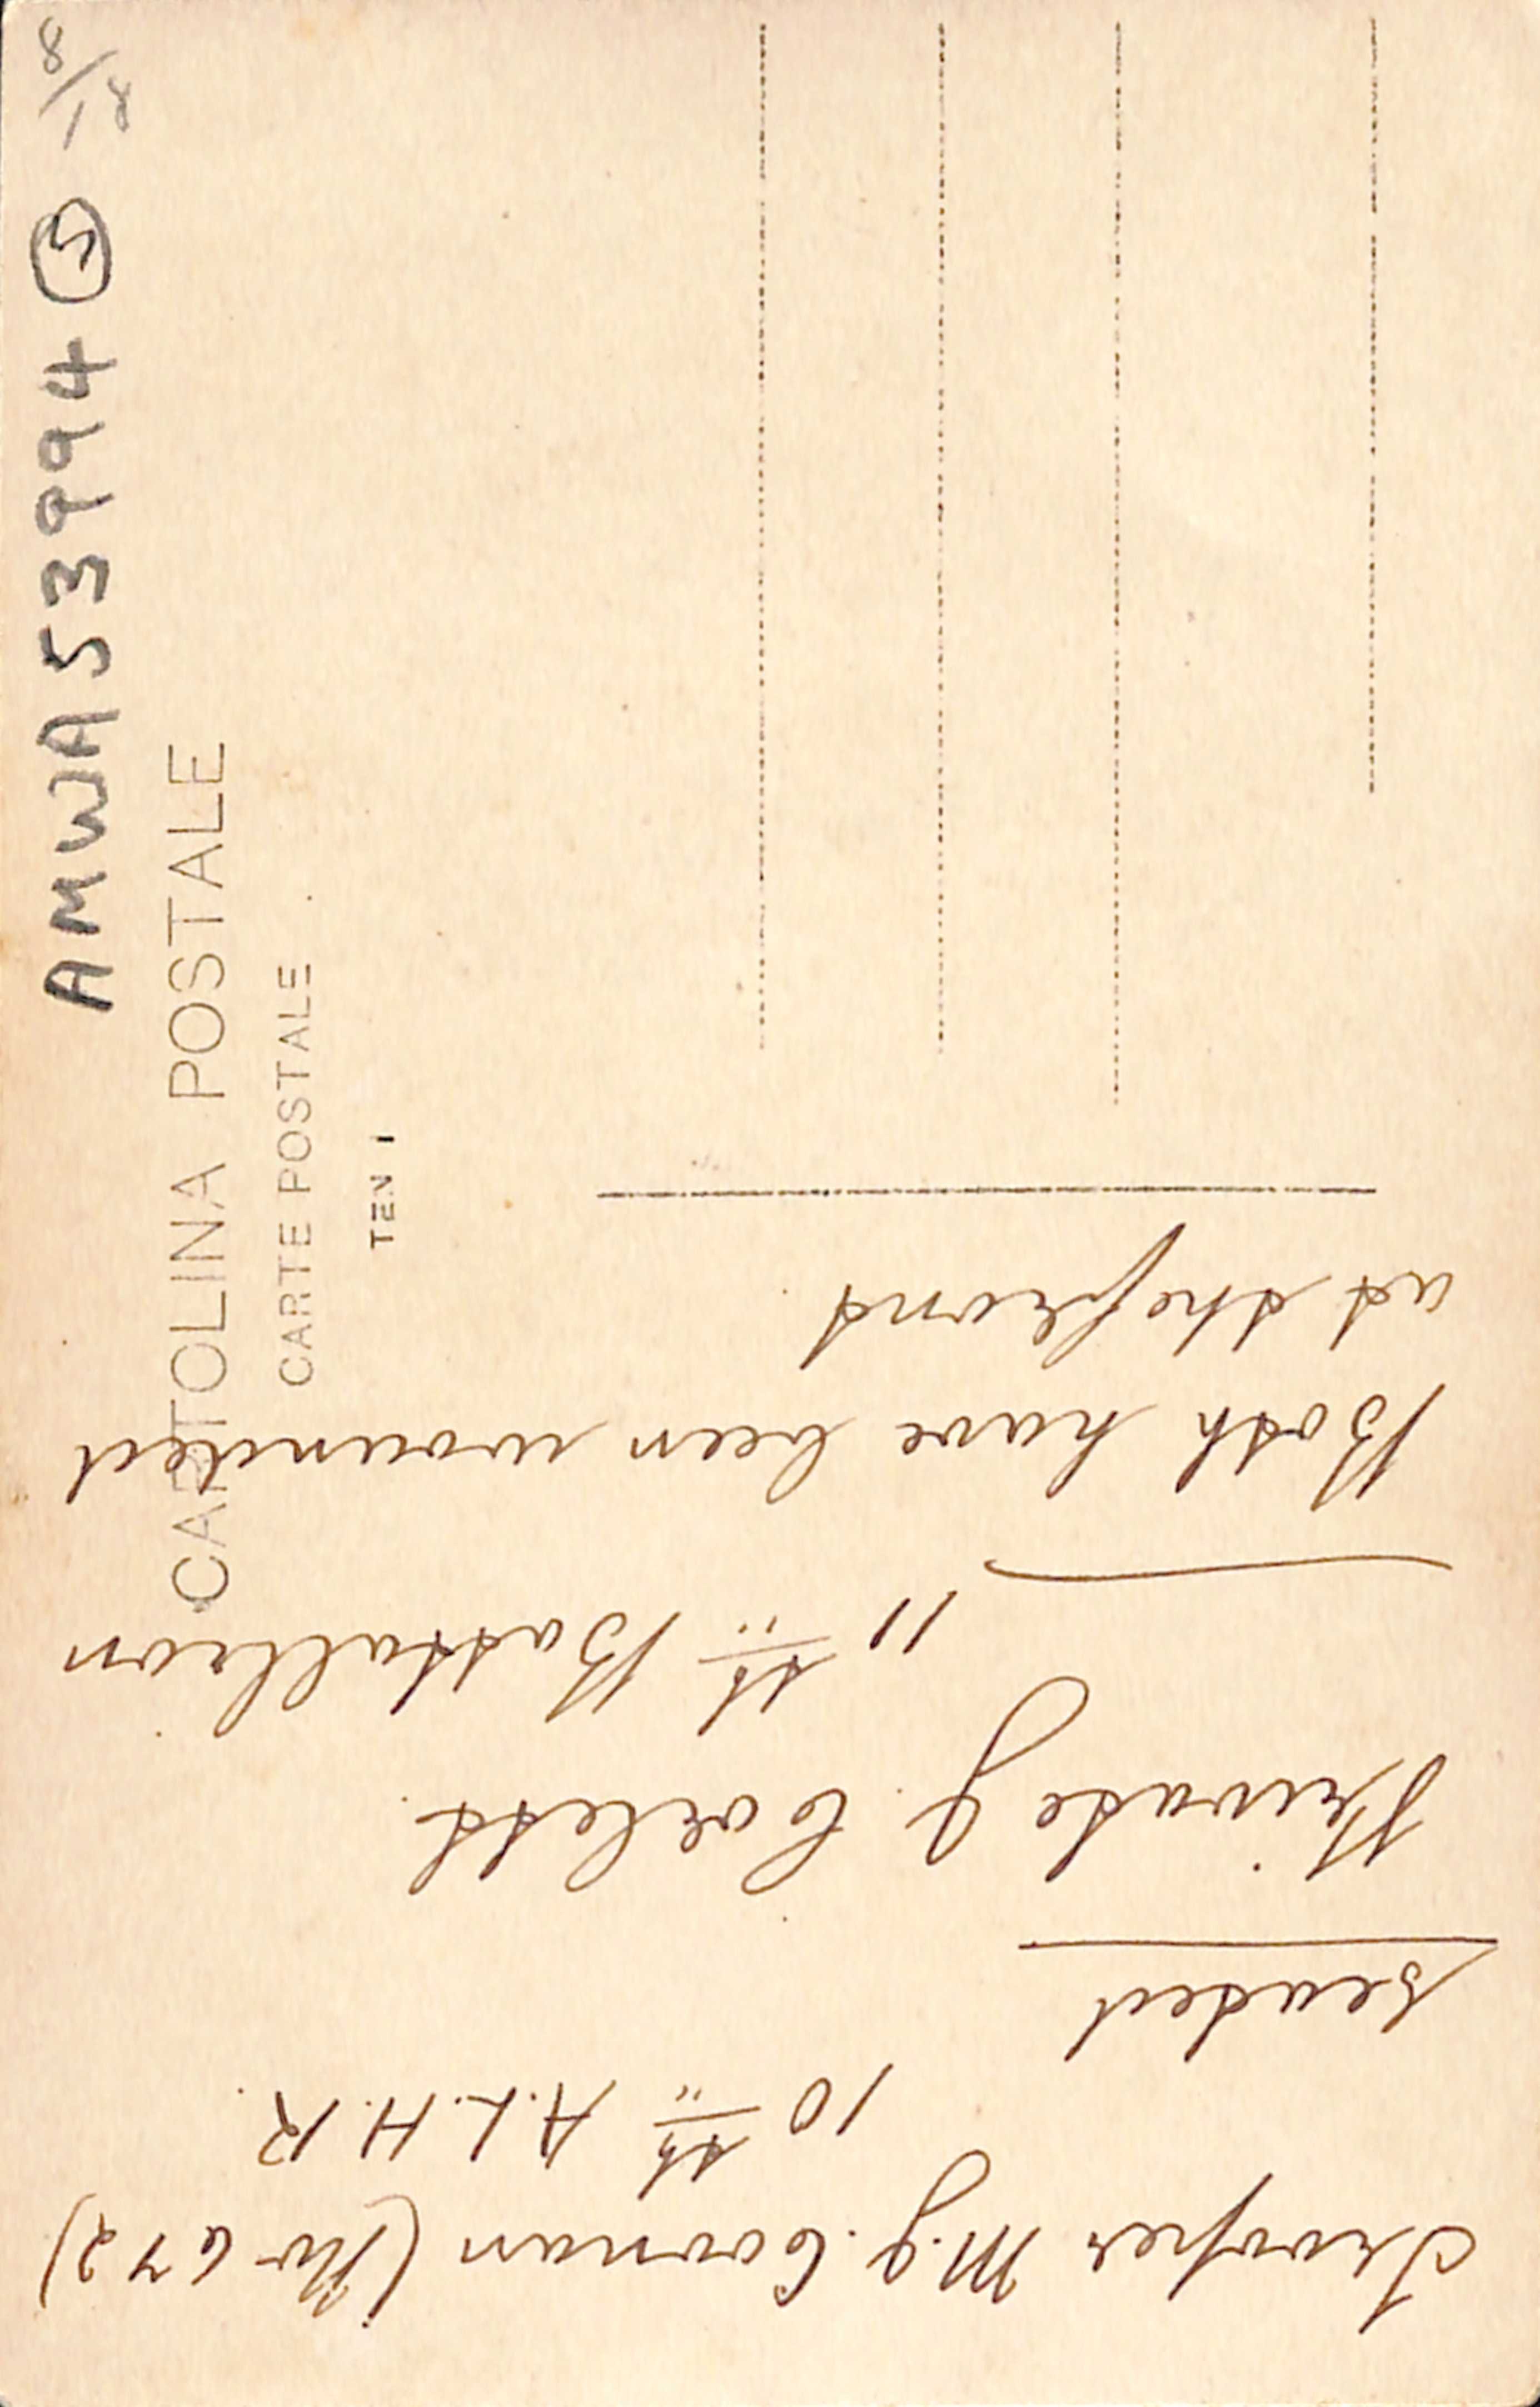 AMWA53994 5
CARTOLINA POSTALE
CARTE POSTALE
Trooper M.J. Coonan (No 672)
10th A.L.H.R.
seated
Private J. Corlett.
11th Battallion
Both have been wounded
at the front